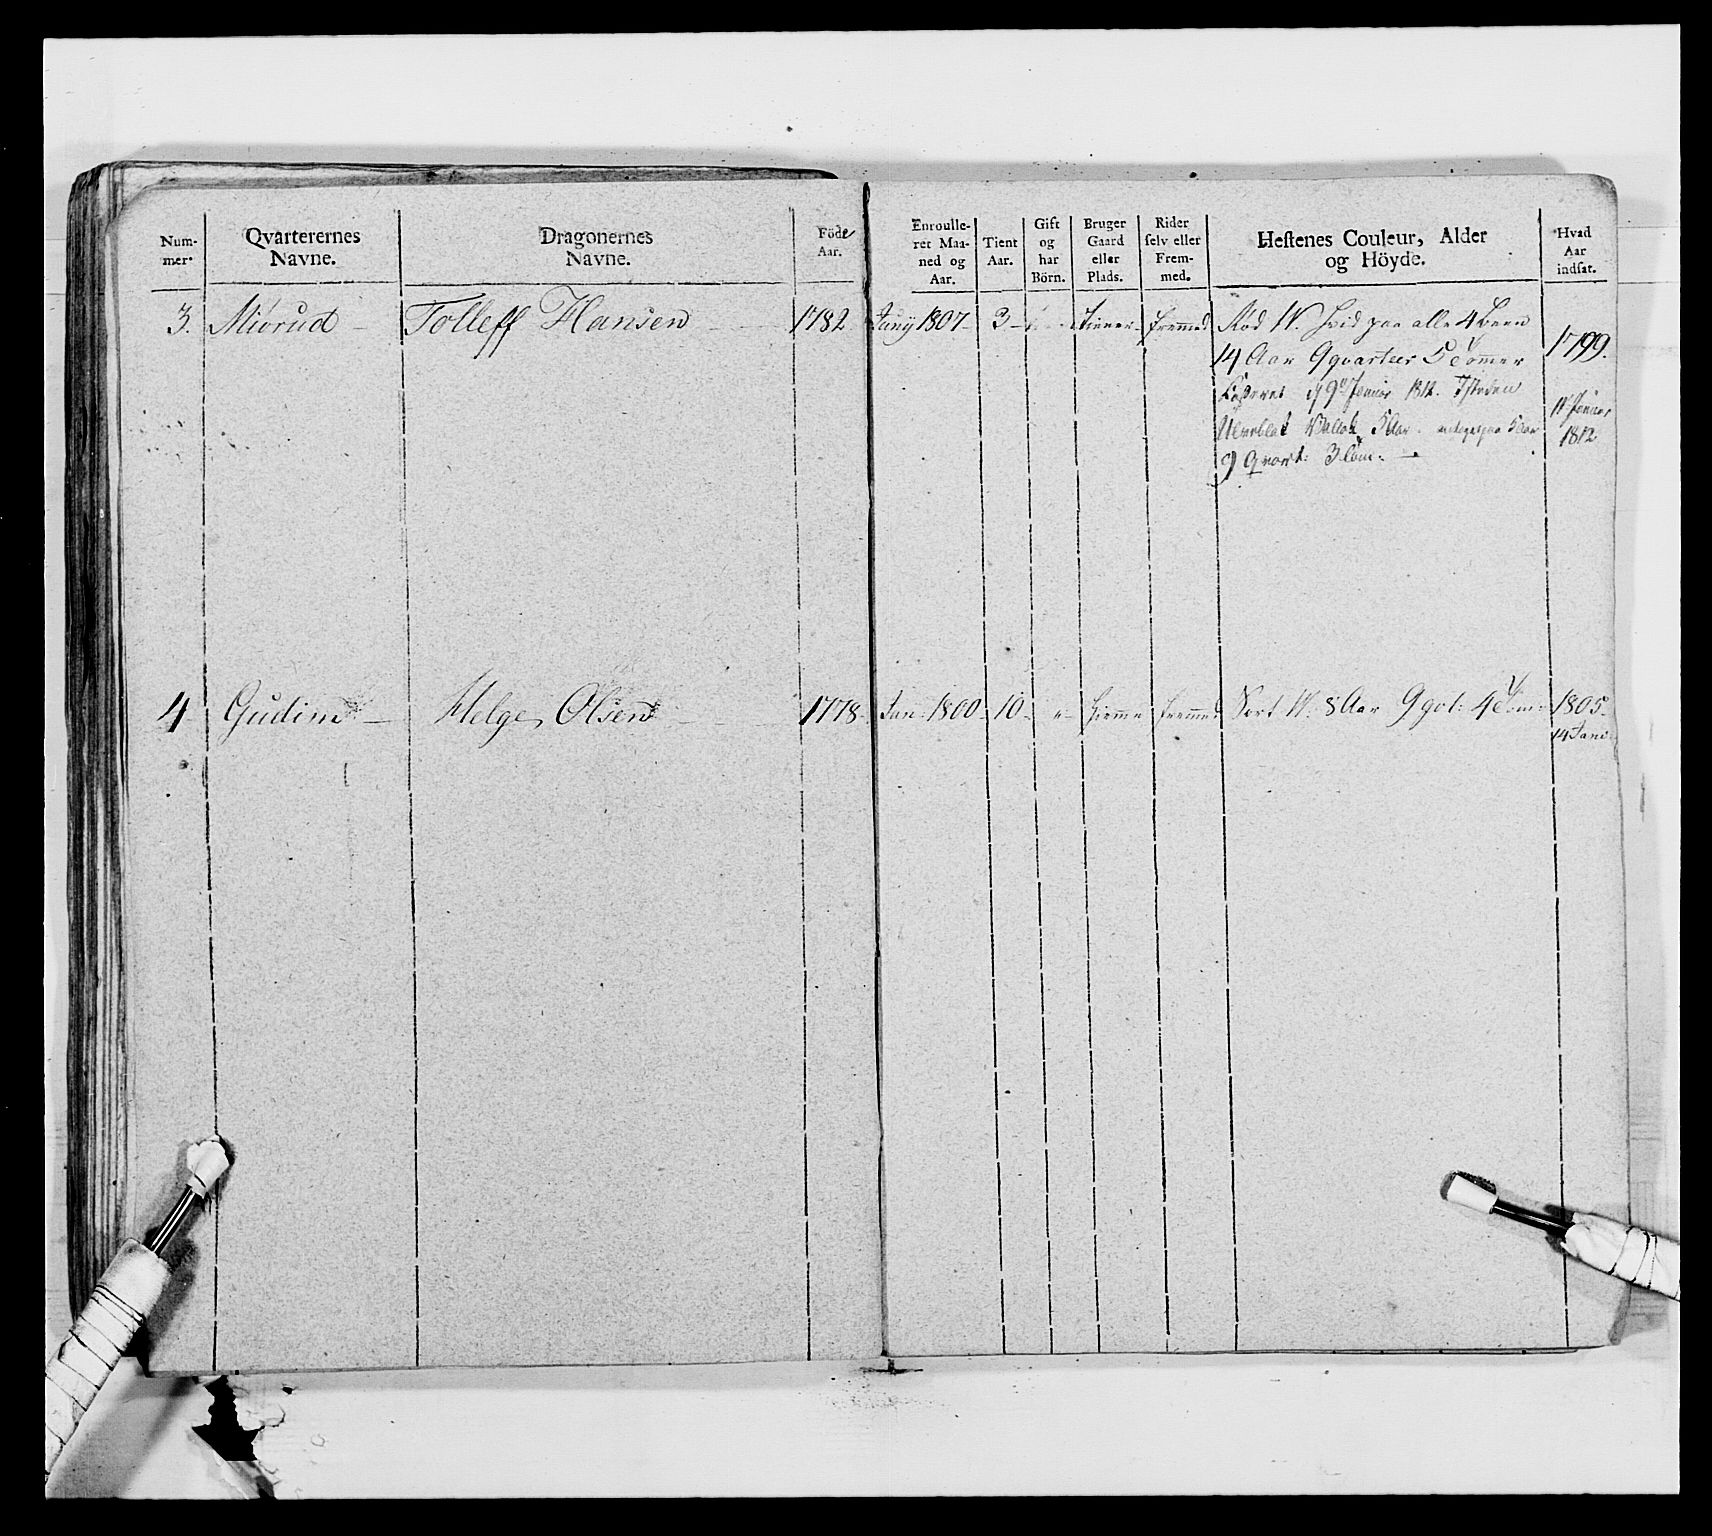 Num-
mer.
Qvarterernes
Navne.
Dragonernes
Navne.
Föde
Aar.
Enroulle-
ret Maa-
ned og
Aar.
Tient
Aar.
Gift
og
har
Börn.
Bruger
Gaard
eller
Plads.
Rider
selv eller
Frem-
med.
Hestenes Couleur, Alder
og Höyde.
Hvad
Aar
indsat.
3. Miörud Tolleff Hansen 1782 Juny 1807 3 Tiener fremmed Rød W. hvid paa alle 4 Been
14 Aar 9 qvarteer 5 Tommer 1799.
Casseret d 9 Januar 1812. Isteden
Vallak 5 Aar
9 Qvart: 3 Tom:
Januar
1812
4 Gudim Helge Olsen 1778 Jan 1800 10 hiemme fremmed Sort W: 8 Aar 9 qvt: 4 Tom: 1805
14 Jan